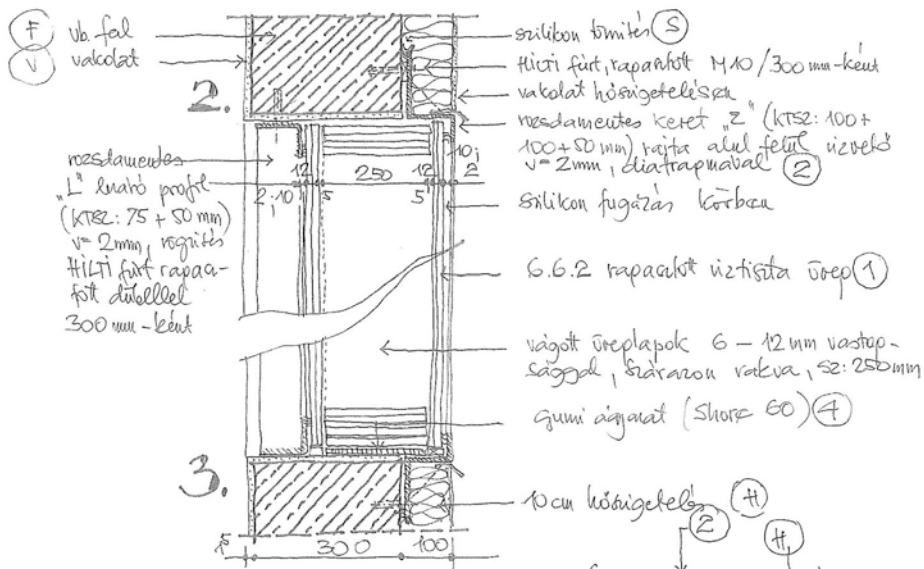 F vb. fal
V vakolat
2.
rozsdamentes
„L" lnahó profil
(KTSZ: 75 + 50 mm)
v= 2mm, rögzítés
HILTI fúrt rapasz-
tott dübellel
300 mm-ként
3.
szilikon tömítés S
HILTI fúrt, rapasztott M10/300 mm-ként
vakolat hőszigetelésen
rozsdamentes keret „Z" (KTSZ: 100+
100+50 mm) rajta alul felül vízvető
v= 2mm, diafragmával 2
12 250 12 10
2 10 5 5 2
szilikon fugázás körben
6.6.2 ragasztott víztiszta üveg 1
vágott üveglapok 6 – 12 mm vastag-
sággal, szárazon rakva, sz: 250mm
gumi ágyazat (Shore 60) 4
10 cm hőszigetelés H
2
H
5 300 100